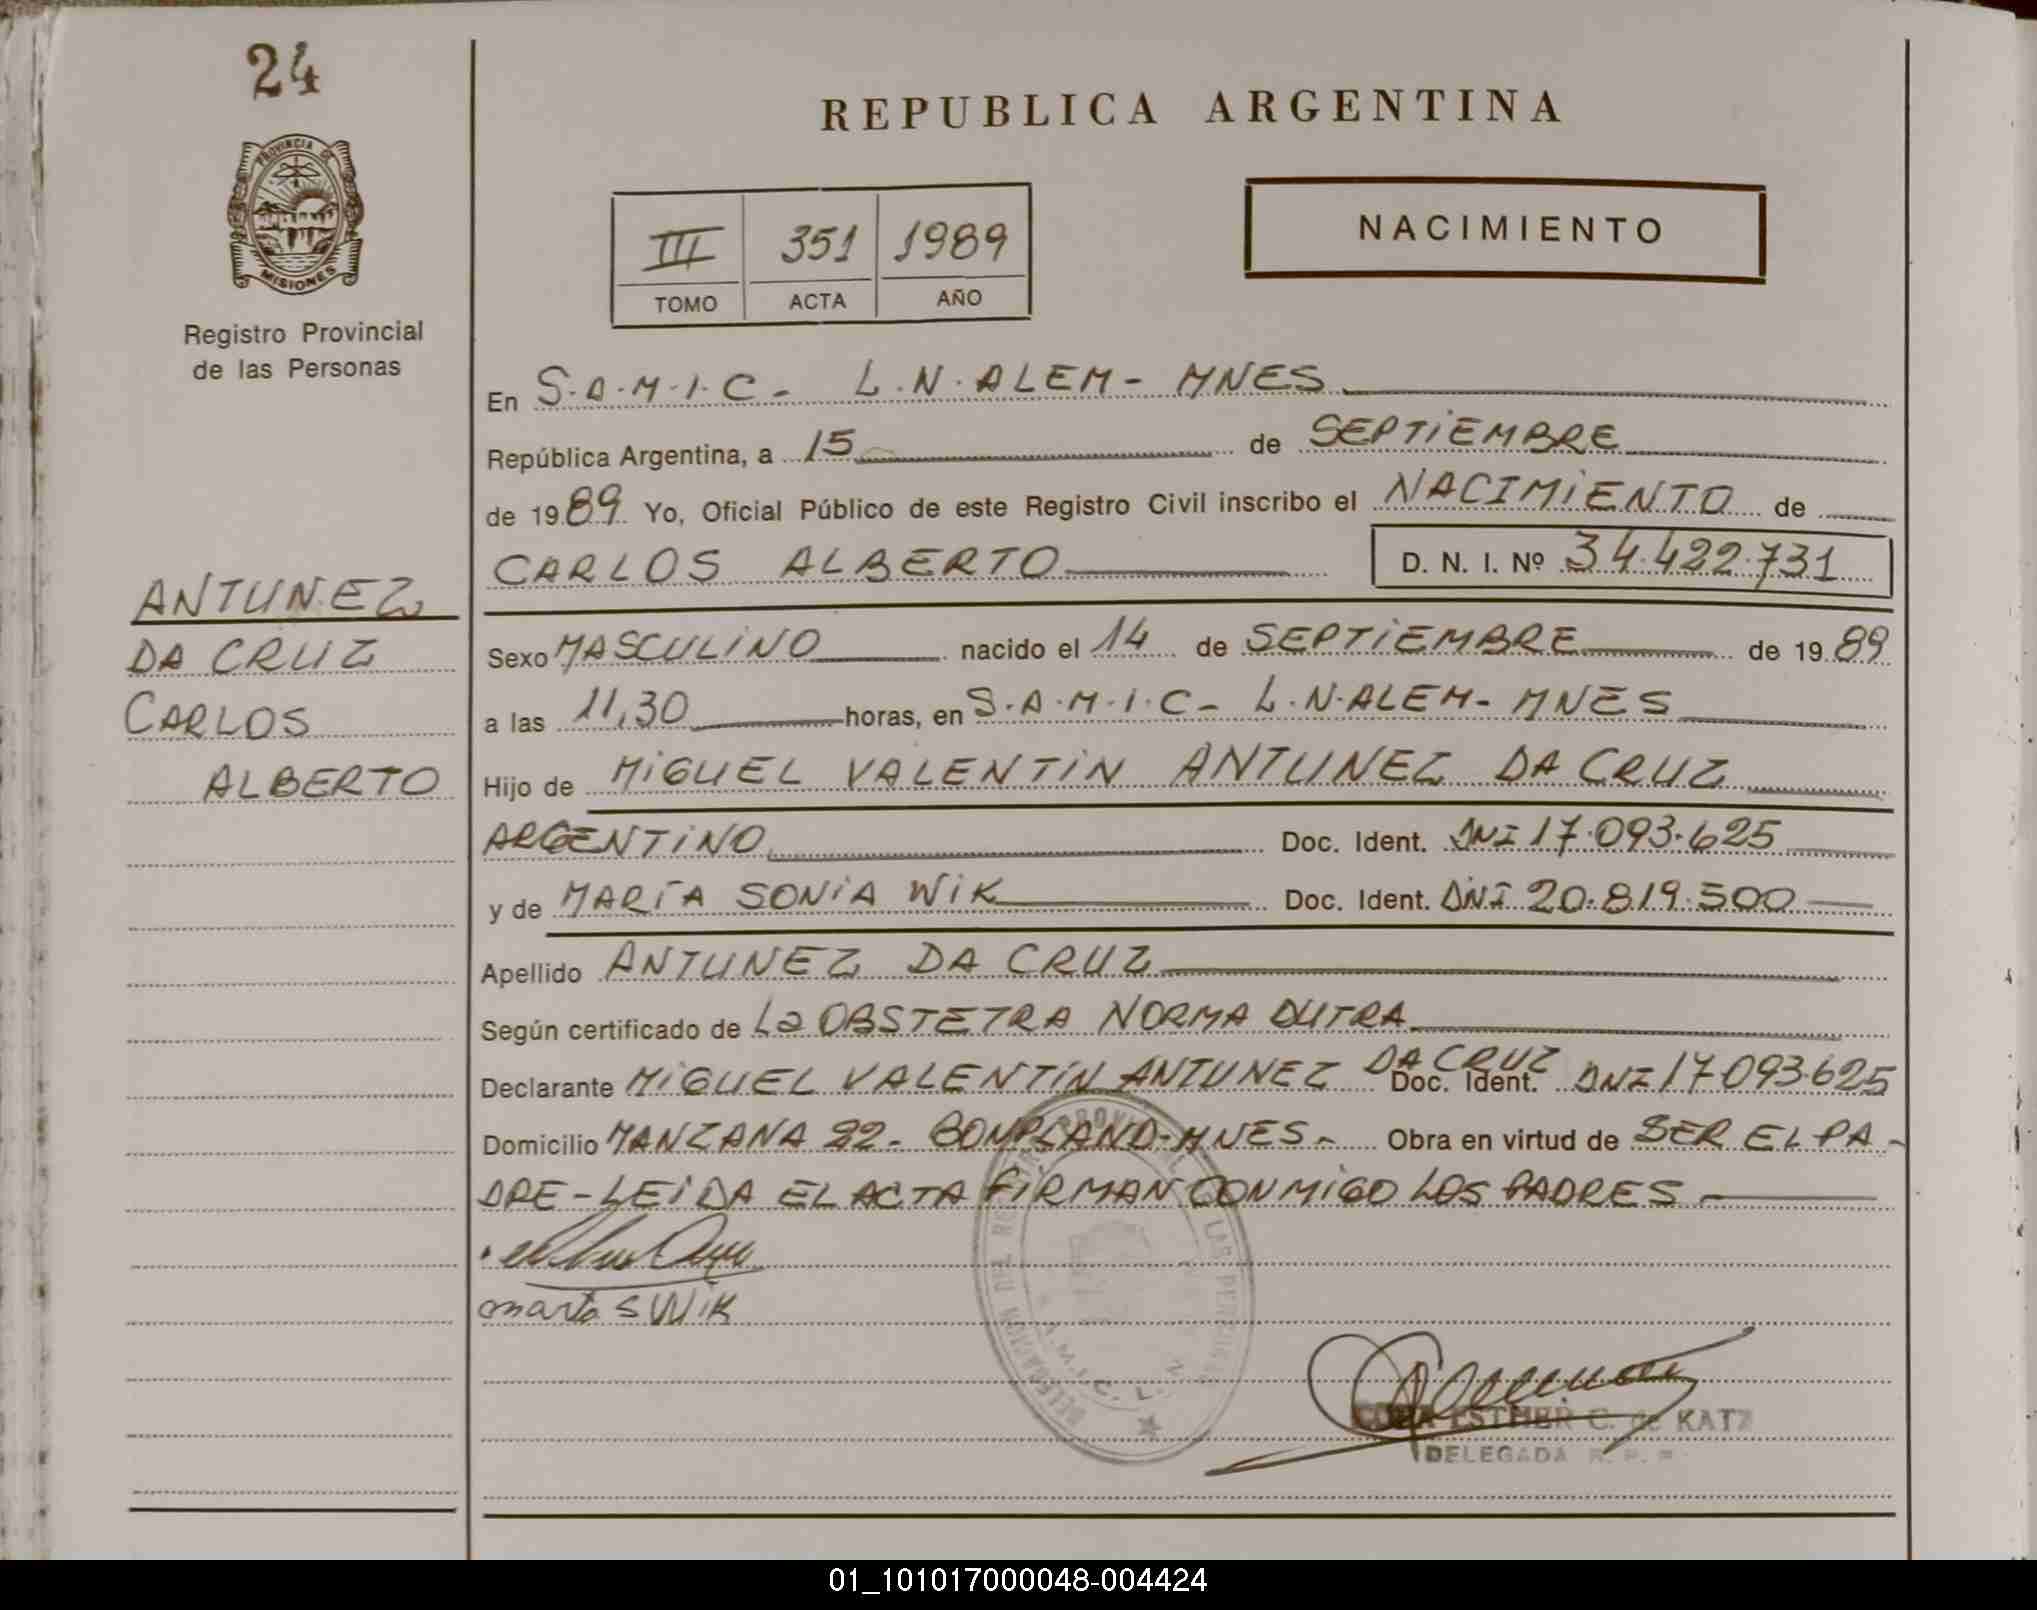 24
PROVINCIA DE
MISIONES
Registro Provincial
de las Personas
ANTUNEZ
DA CRUZ
CARLOS
ALBERTO
REPUBLICA ARGENTINA
III 351 1989
TOMO ACTA AÑO
NACIMIENTO
En S.A.M.I.C- L.N.ALEM- MNES
República Argentina, a 15 de SEPTIEMBRE
de 1989 Yo, Oficial Público de este Registro Civil inscribo el NACIMIENTO de
CARLOS ALBERTO D. N. I. Nº 34.422.731
Sexo MASCULINO nacido el 14 de SEPTIEMBRE de 1989
a las 11,30 horas, en S.A.M.I.C- L.N.ALEM- MNES
Hijo de MIGUEL VALENTIN ANTUNEZ DA CRUZ
ARGENTINO Doc. Ident. DNI 17.093.625
y de MARÍA SONIA WIK Doc. Ident. DNI 20.819.500
Apellido ANTUNEZ DA CRUZ
Según certificado de La OBSTETRA NORMA DUTRA
Declarante MIGUEL VALENTÍN ANTUNEZ DA CRUZ Doc. Ident. DNI 17093.625
Domicilio MANZANA 22- BONPLAND-MNES- Obra en virtud de SER EL PA-
DRE-LEIDA EL ACTA FIRMAN CONMIGO LOS PADRES
maria S Wik
ESTHER C. de KATZ
DELEGADA R. P. P.
01_101017000048-004424